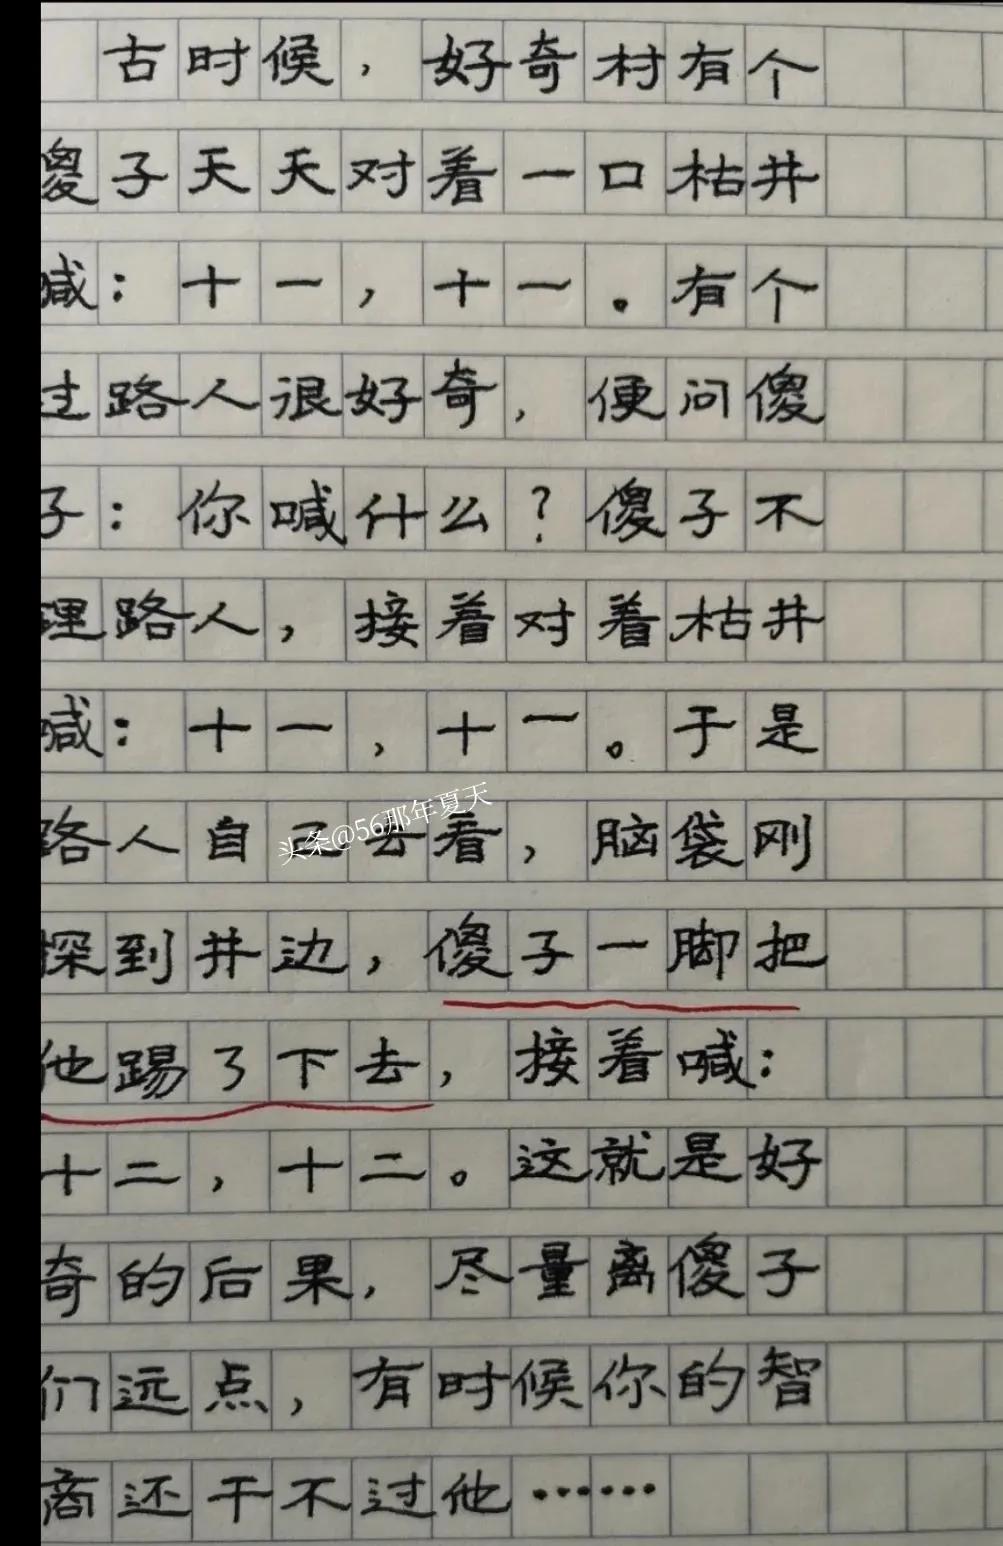 古时候，好奇村有个
傻子天天对着一口枯井
喊：十一，十一。有个
过路人很好奇，便问傻
子：你喊什么？傻子不
理路人，接着对着枯井
喊：十一，十一。于是
路人自己去看，脑袋刚
头条@56那年夏天
探到井边，傻子一脚把
他踢了下去，接着喊：
十二，十二。这就是好
奇的后果，尽量离傻子
们远点，有时候你的智
商还干不过他……